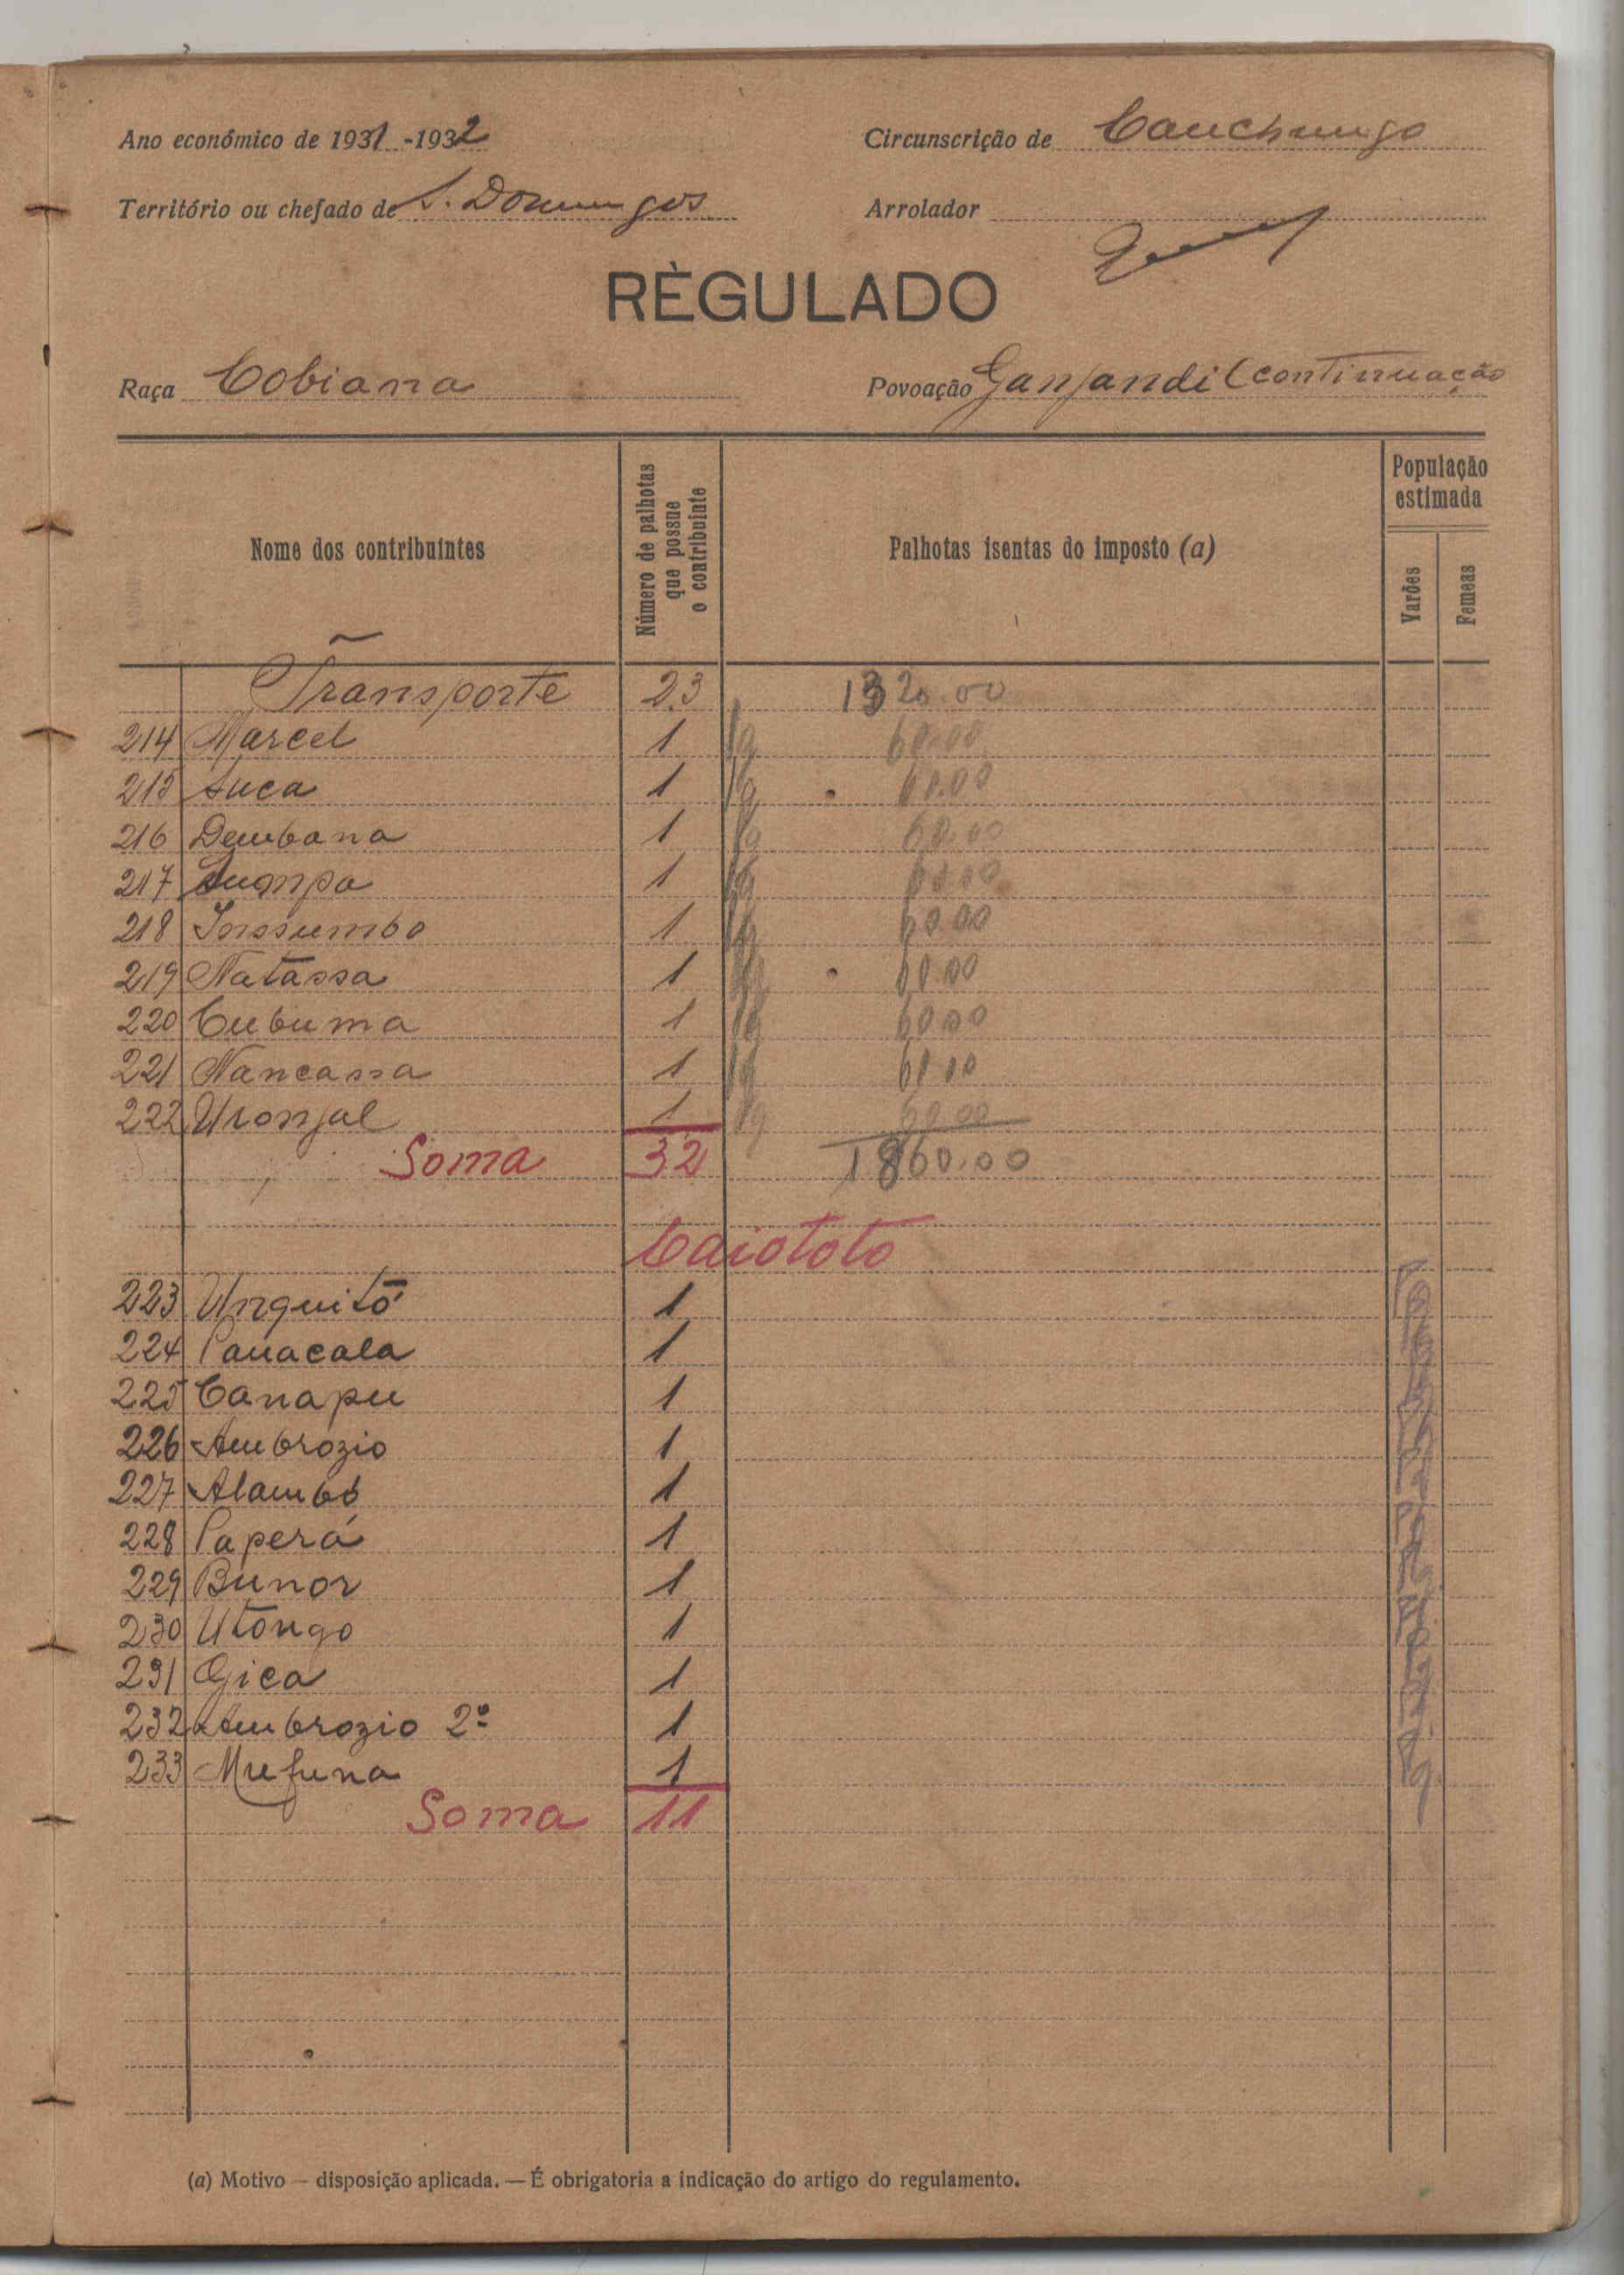 Ano económico de 1931-1932
Circunscrição de Canchungo
Território ou chefado de S. Domingos
Arrolador
RÈGULADO
Raça Cobiana
Povoação Ganjandi (continuação
Nome dos contribuintes
Número de palhotas que possue o contribuinte
Palhotas isentas do imposto (a)
População estimada
Varões
Femeas
Transporte 23 1320.00
214 Marcel 1 Pg 60.00
215 Suca 1 Pg 60.00
216 Dembana 1 Pg 60.00
217 Sumpa 1 Pg 60.00
218 Inssumbo 1 Pg 60.00
219 Natassa 1 Pg 60.00
220 Cubuma 1 Pg 60.00
221 Nancassa 1 Pg 60.00
222 Uronjal 1 Pg 60.00
Soma 32 1860.00
Caiototo
223 Unquitó 1
224 Panacala 1
225 Canapu 1
226 Ambrozio 1
227 Alambó 1
228 Paperá 1
229 Bunor 1
230 Utongo 1
231 Gica 1
232 Ambrozio 2º 1
233 Mufuna 1
Soma 11
(a) Motivo — disposição aplicada. — É obrigatoria a indicação do artigo do regulamento.